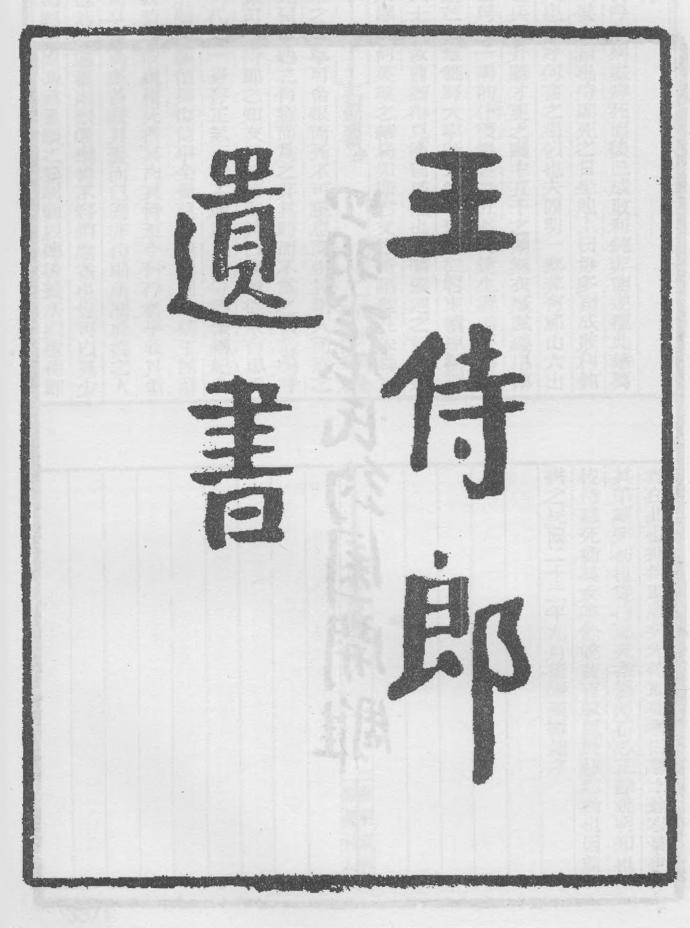 王侍郎
遺書